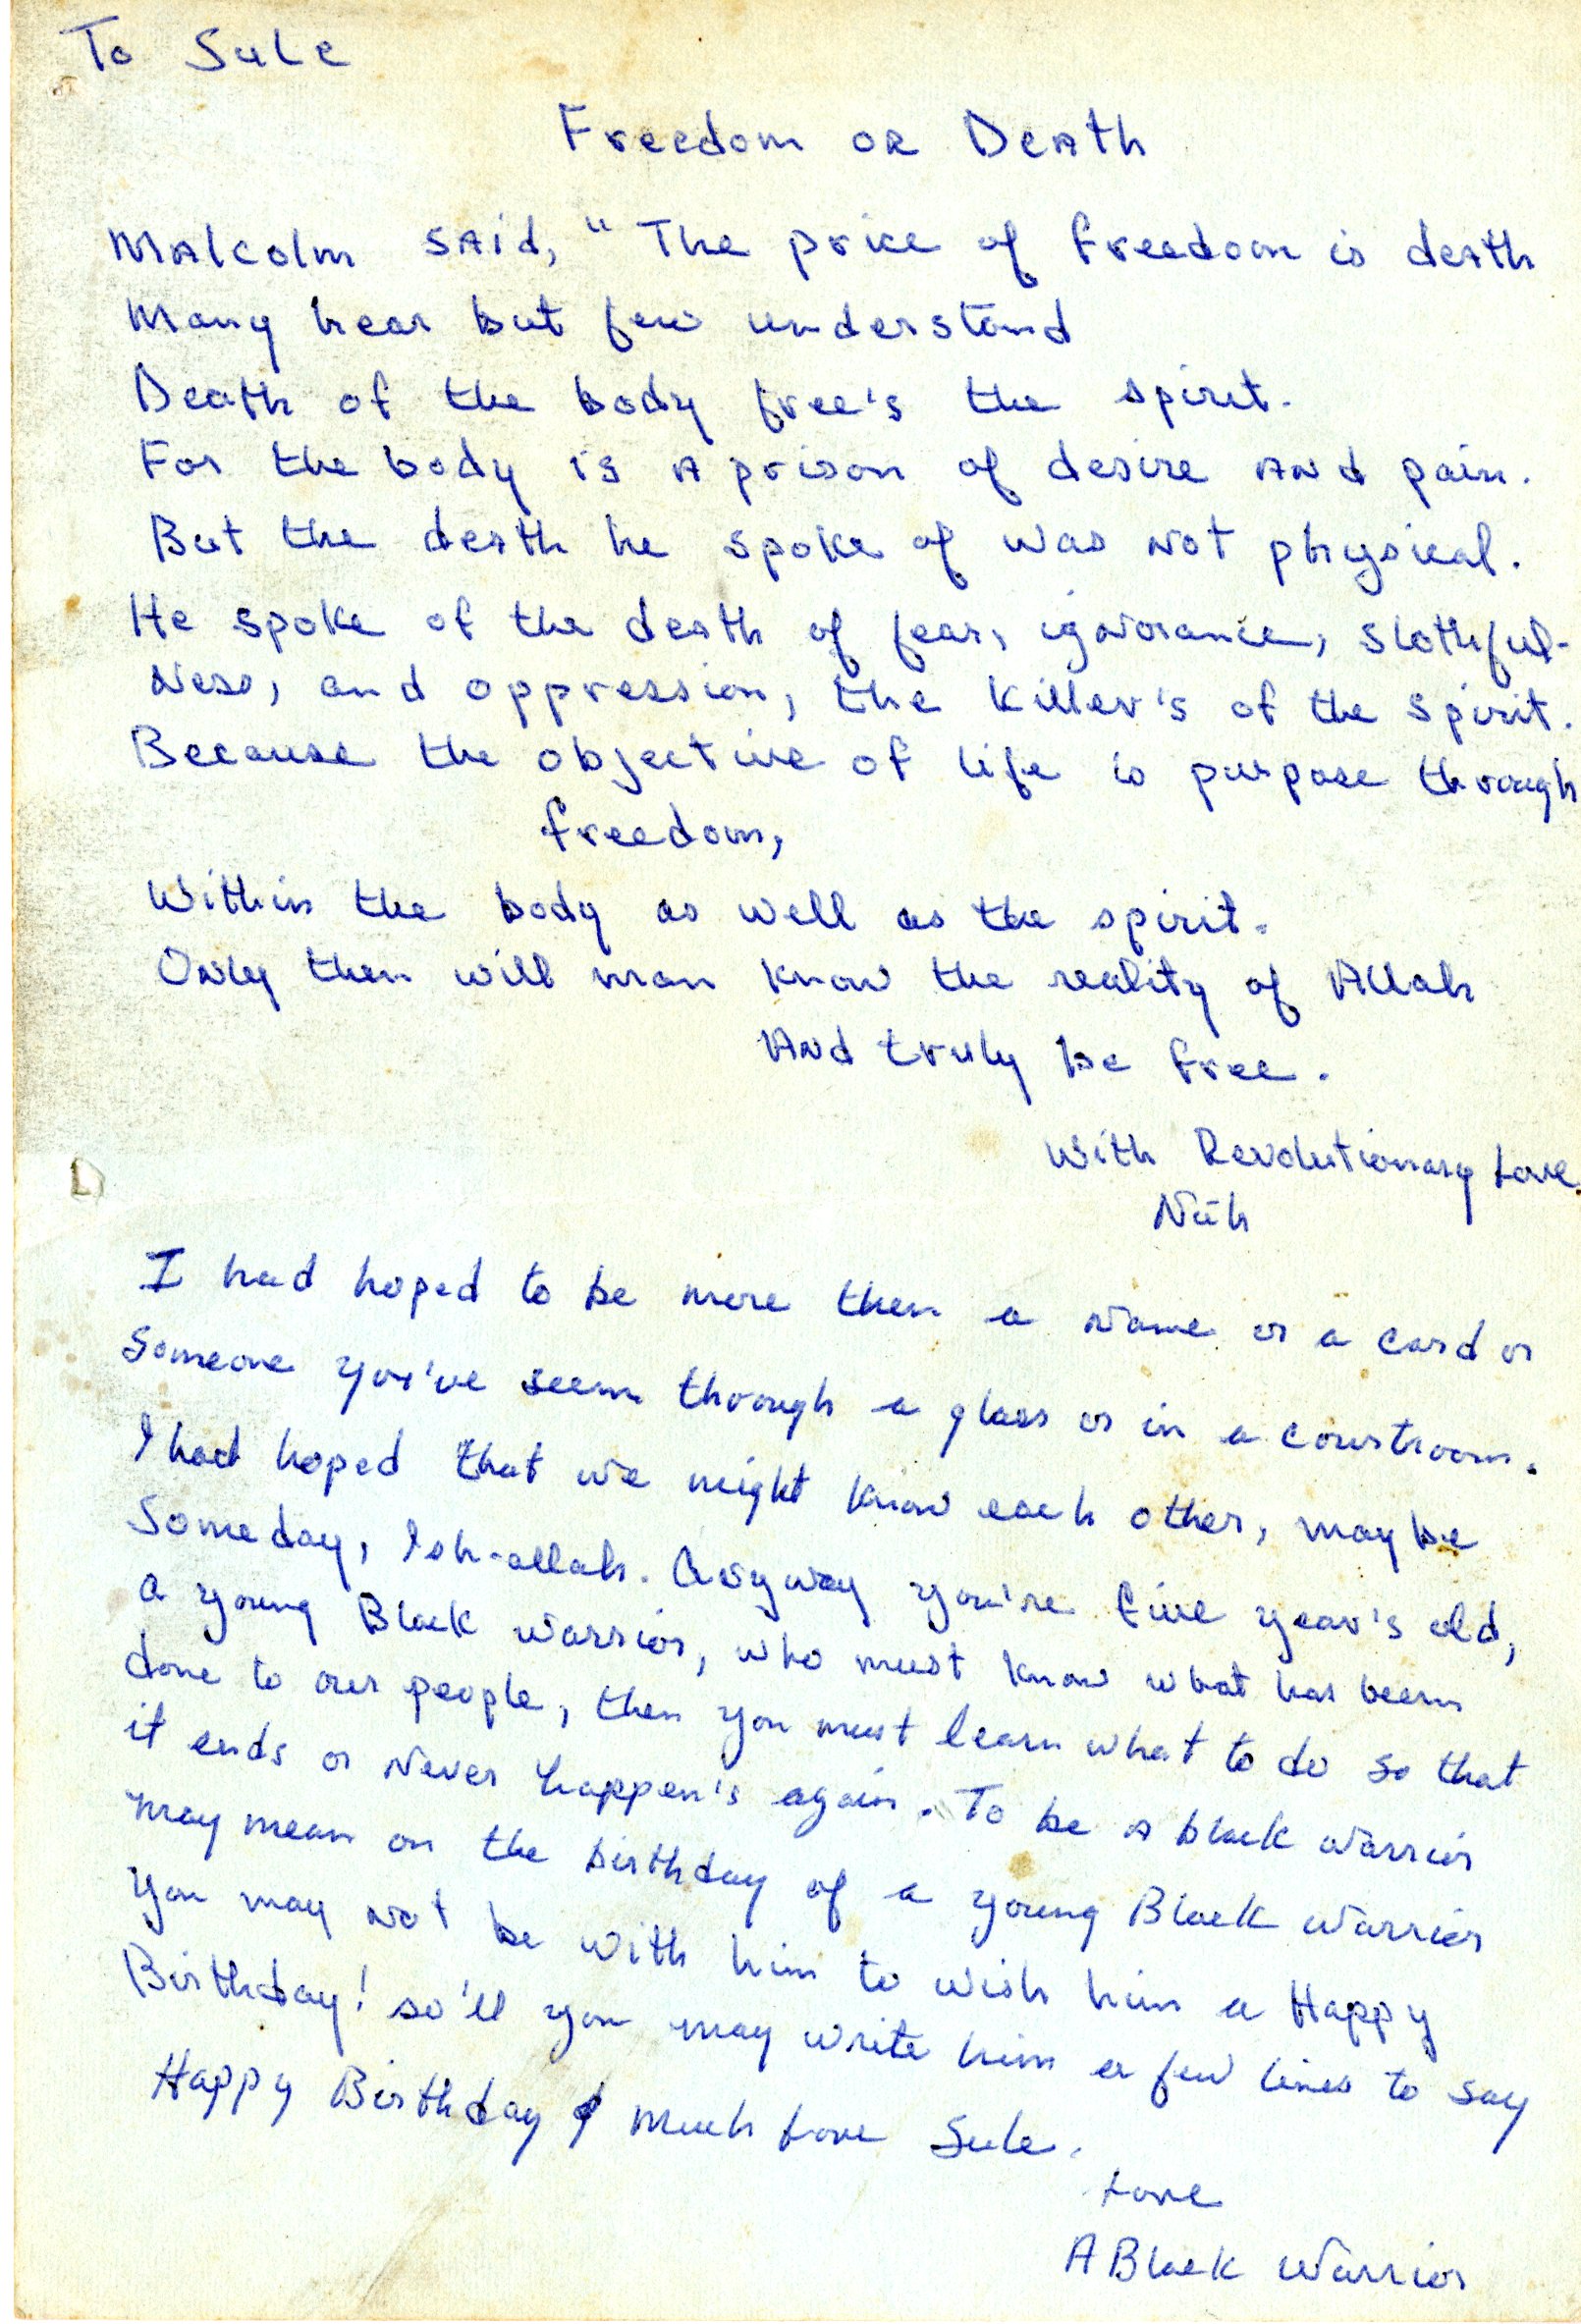 To Sule
Freedom or Death
Malcolm said, " The price of freedom is death
Many hear but few understand
Death of the body free's the spirit.
For the body is a prison of desire and pain.
But the death he spoke of was not physical.
He spoke of the death of fear, ignorance, slothful-
ness, and oppression, the killer's of the spirit.
Because the objective of life is purpose through
freedom,
Within the body as well as the spirit.
Only then will man know the reality of Allah
And truly be free.
With Revolutionary Love,
Nuh
I had hoped to be more then a name or a card or
someone you've seem through a glass or in a courtroom.
I had hoped that we might know each other, maybe
Someday, Ish-allah. Anyway you're five year's old,
a young Black warrior, who must know what has been
done to our people, then you must learn what to do so that
it ends or never happen's again. To be a black warrior
may mean on the birthday of a young Black warrior
you may not be with him to wish him a Happy
Birthday! so'll you may write him a few lines to say
Happy Birthday & much Love Sule.
Love
A Black Warrior